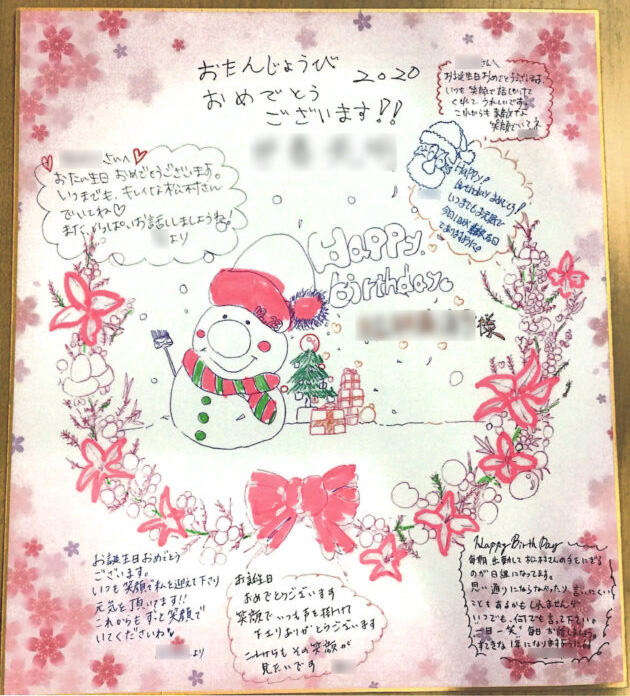 おたんじょうび
2020
おめでとう
ございます!!
さん
お誕生日おめでとうございます。
いつも笑顔で話しかけて
くれて、うれしいです。
これからも素敵な
笑顔でいてネ
さいへ
おたん生日おめでとうございます。
いつまでも、キレイな松村さん
でいてね♡
また、いっぱいお話ししましょうね。
より
Happy!
Birthday おめでとう!
いつまでもお元気で
今日1日が素敵な日
でありますように。
Happy
birthday
様
お誕生日おめでとう
ございます。
いつも笑顔で私を迎えて下さり
元気を頂いてます!!
これからもずっと笑顔で
いてくださいね
より
お誕生日
おめでとうございます
笑顔でいつも声を掛けて
下さりありがとうございます
これからもその笑顔が
見たいです
Happy Birth Day
毎朝出勤して松村さんの手をにぎる
のが日課になってます。
思い通りにならなかったり、言いにくい
こともあるかもしれませんが
いつでも、何でも言って下さい。
一日一笑 毎日お話しましょう。
すてきな1年になりますように